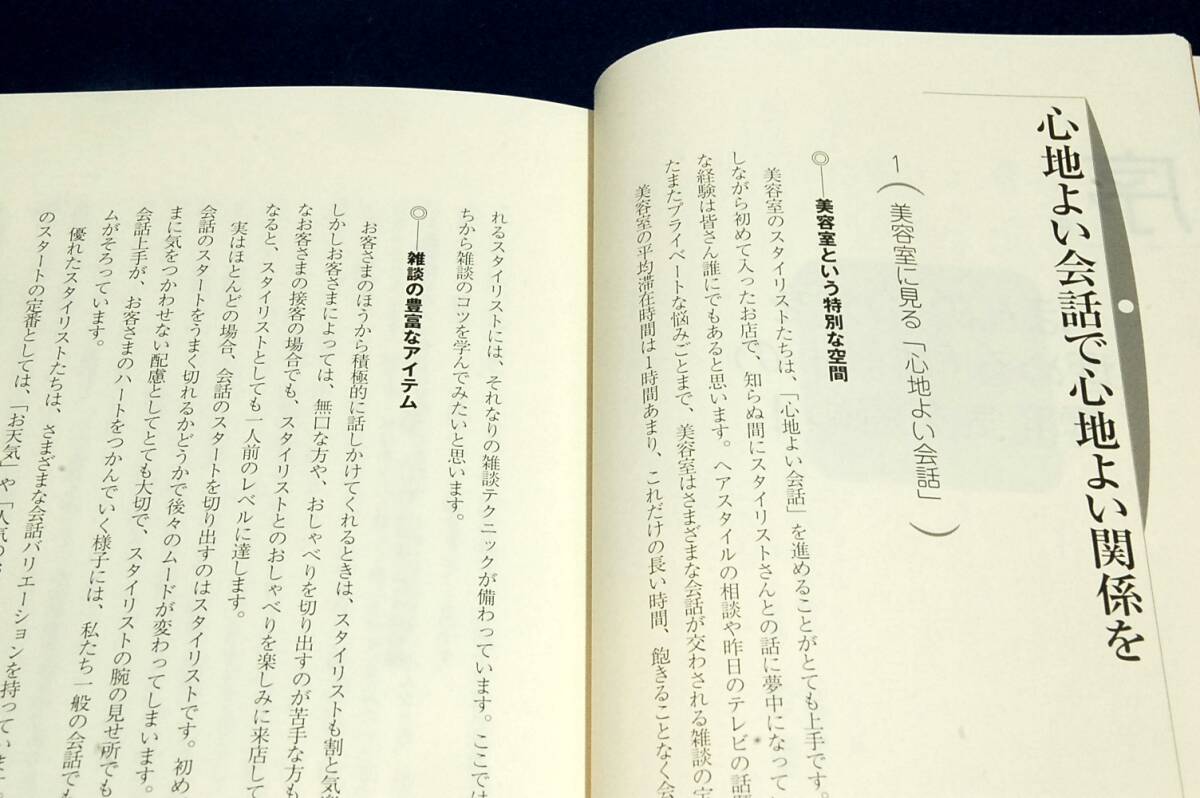 心地よい会話で心地よい関係を
1(美容室に見る「心地よい会話」)
◎──美容室という特別な空間
美容室のスタイリストたちは、「心地よい会話」を進めることがとても上手です。
しながら初めて入ったお店で、知らぬ間にスタイリストさんとの話に夢中になって
な経験は皆さん誰にでもあると思います。ヘアスタイルの相談や昨日のテレビの話題
たまたプライベートな悩みごとまで、美容室はさまざまな会話が交わされる雑談の
美容室の平均滞在時間は1時間あまり、これだけの長い時間、飽きることなく会
れるスタイリストには、それなりの雑談テクニックが備わっています。ここでは
ちから雑談のコツを学んでみたいと思います。
◎──雑談の豊富なアイテム
お客さまのほうから積極的に話しかけてくれるときは、スタイリストも割と気楽
しかしお客さまによっては、無口な方や、おしゃべりを切り出すのが苦手な方も
なお客さまの接客の場合でも、スタイリストとのおしゃべりを楽しみに来店して
なると、スタイリストとしても一人前のレベルに達します。
実はほとんどの場合、会話のスタートを切り出すのはスタイリストです。初め
会話のスタートをうまく切れるかどうかで後々のムードが変わってしまいます。
まに気をつかわせない配慮としてとても大切で、スタイリストの腕の見せ所でも
会話上手が、お客さまのハートをつかんでいく様子には、私たち一般の会話でも
ムがそろっています。
優れたスタイリストたちは、さまざまな会話バリエーションを持っています。
のスタートの定番としては、「お天気」や「人気の